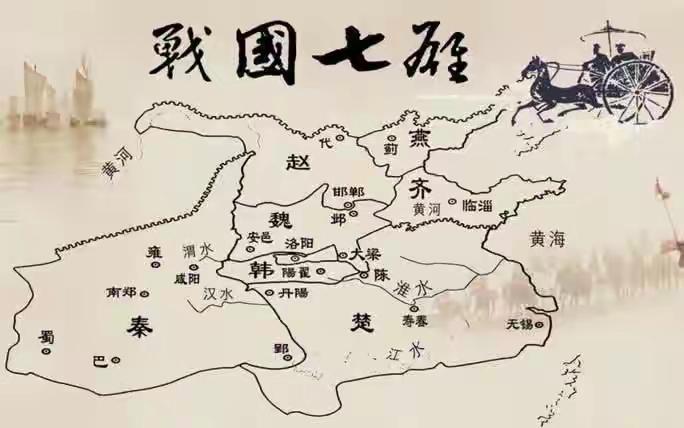 戰國七雄
代
蓟
燕
赵
黄河
齐
邯郸
邺
黄河
临淄
魏
安邑
洛阳
大梁
黄海
雍
渭水
咸阳
韩
陽翟
陈
南郑
汉水
丹陽
淮水
秦
楚
寿春
无锡
蜀
巴
郢
江水